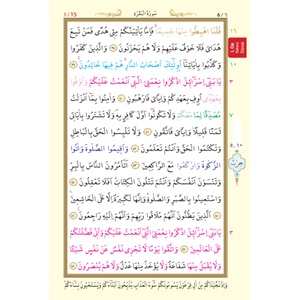 1/15
سُورَةُ الْبَقَرَةِ
قُلْنَا اهْبِطُوا مِنْهَا جَمِيعًا فَإِمَّا يَأْتِيَنَّكُمْ مِنِّى هُدًى فَمَنْ تَبِعَ
هُدَاىَ فَلَا خَوْفٌ عَلَيْهِمْ وَلَا هُمْ يَحْزَنُونَ وَالَّذِينَ كَفَرُوا
وَكَذَّبُوا بِآيَاتِنَا أُولَئِكَ أَصْحَابُ النَّارِ هُمْ فِيهَا خَالِدُونَ
يَا بَنِى إِسْرَائِيلَ اذْكُرُوا نِعْمَتِىَ الَّتِى أَنْعَمْتُ عَلَيْكُمْ وَأَوْفُوا
بِعَهْدِى أُوفِ بِعَهْدِكُمْ وَإِيَّاىَ فَارْهَبُونِ وَآمِنُوا بِمَا أَنْزَلْتُ
مُصَدِّقًا لِمَا مَعَكُمْ وَلَا تَكُونُوا أَوَّلَ كَافِرٍ بِهِ وَلَا تَشْتَرُوا بِآيَاتِى
ثَمَنًا قَلِيلًا وَإِيَّاىَ فَاتَّقُونِ وَلَا تَلْبِسُوا الْحَقَّ بِالْبَاطِلِ
وَتَكْتُمُوا الْحَقَّ وَأَنْتُمْ تَعْلَمُونَ وَأَقِيمُوا الصَّلٰوةَ وَآتُوا
الزَّكٰوةَ وَارْكَعُوا مَعَ الرَّاكِعِينَ أَتَأْمُرُونَ النَّاسَ بِالْبِرِّ
وَتَنْسَوْنَ أَنْفُسَكُمْ وَأَنْتُمْ تَتْلُونَ الْكِتَابَ أَفَلَا تَعْقِلُونَ
وَاسْتَعِينُوا بِالصَّبْرِ وَالصَّلٰوةِ وَإِنَّهَا لَكَبِيرَةٌ إِلَّا عَلَى الْخَاشِعِينَ
الَّذِينَ يَظُنُّونَ أَنَّهُمْ مُلَاقُوا رَبِّهِمْ وَأَنَّهُمْ إِلَيْهِ رَاجِعُونَ
يَا بَنِى إِسْرَائِيلَ اذْكُرُوا نِعْمَتِىَ الَّتِى أَنْعَمْتُ عَلَيْكُمْ وَأَنِّى فَضَّلْتُكُمْ
عَلَى الْعَالَمِينَ وَاتَّقُوا يَوْمًا لَا تَجْزِى نَفْسٌ عَنْ نَفْسٍ شَيْئًا
وَلَا يُقْبَلُ مِنْهَا شَفَاعَةٌ وَلَا يُؤْخَذُ مِنْهَا عَدْلٌ وَلَا هُمْ يُنْصَرُونَ